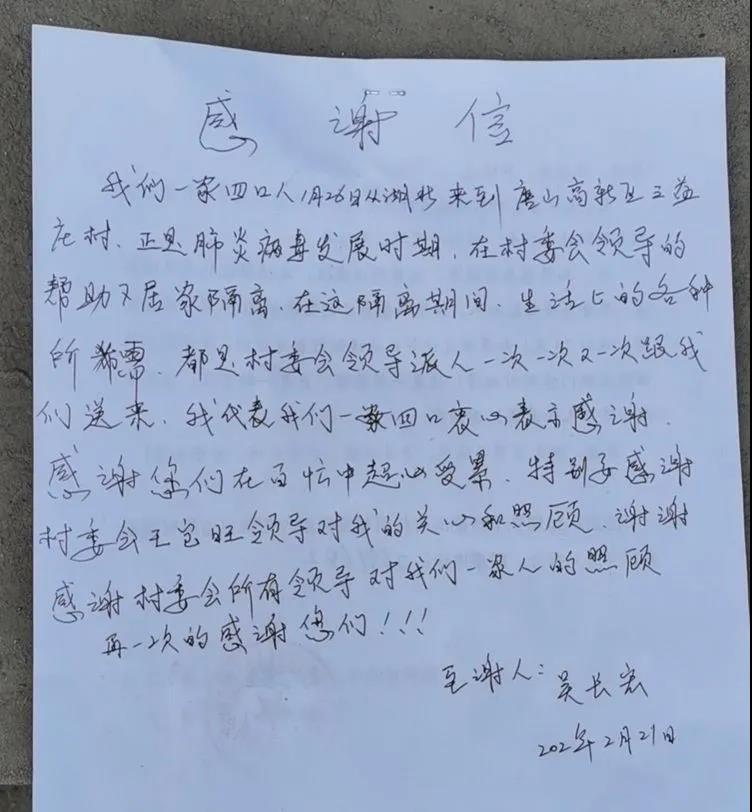 感 谢 信
我们一家四口人1月26日从湖北来到唐山高新区三益
庄村.正是肺炎病毒发展时期.在村委会领导的
帮助下居家隔离.在这隔离期间.生活上的各种
所需.都是村委会领导派人一次一次又一次跟我
们送来.我代表我们一家四口衷心表示感谢.
感谢您们在百忙中超心受累.特别要感谢
村委会王宝旺领导对我的关心和照顾.谢谢
感谢村委会所有领导对我们一家人的照顾
再一次的感谢您们!!!
至谢人:吴长宏
202年2月21日